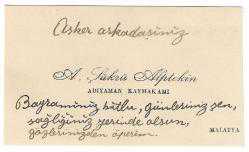 Asker arkadaşınız
A. Şükrü Alptekin
ADIYAMAN KAYMAKAMI
Bayramınız kutlu, günleriniz şen,
sağlığınız yerinde olsun,
gözlerinizden öperem.
MALATYA